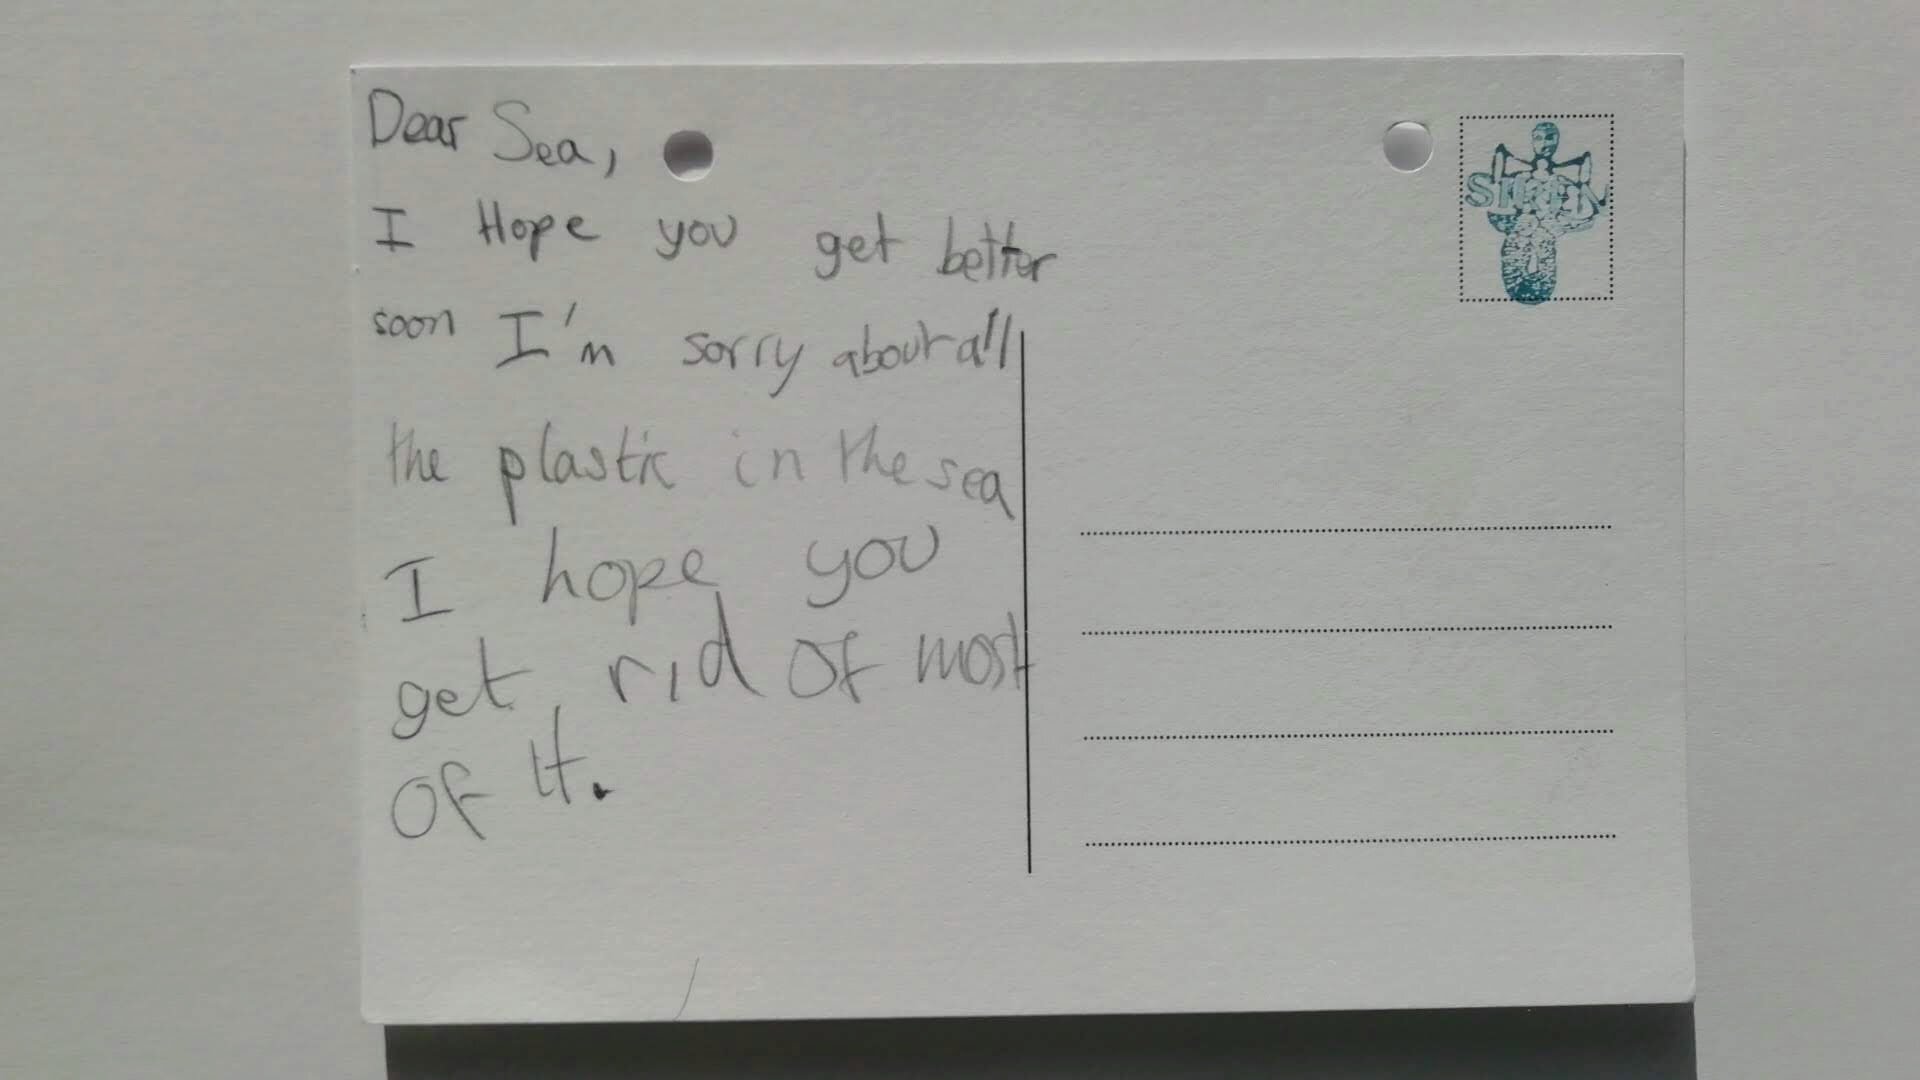 Dear Sea,
I Hope you get better
soon I'm sorry about all
the plastic in the sea
I hope you
get rid of most
of it.
SIREN